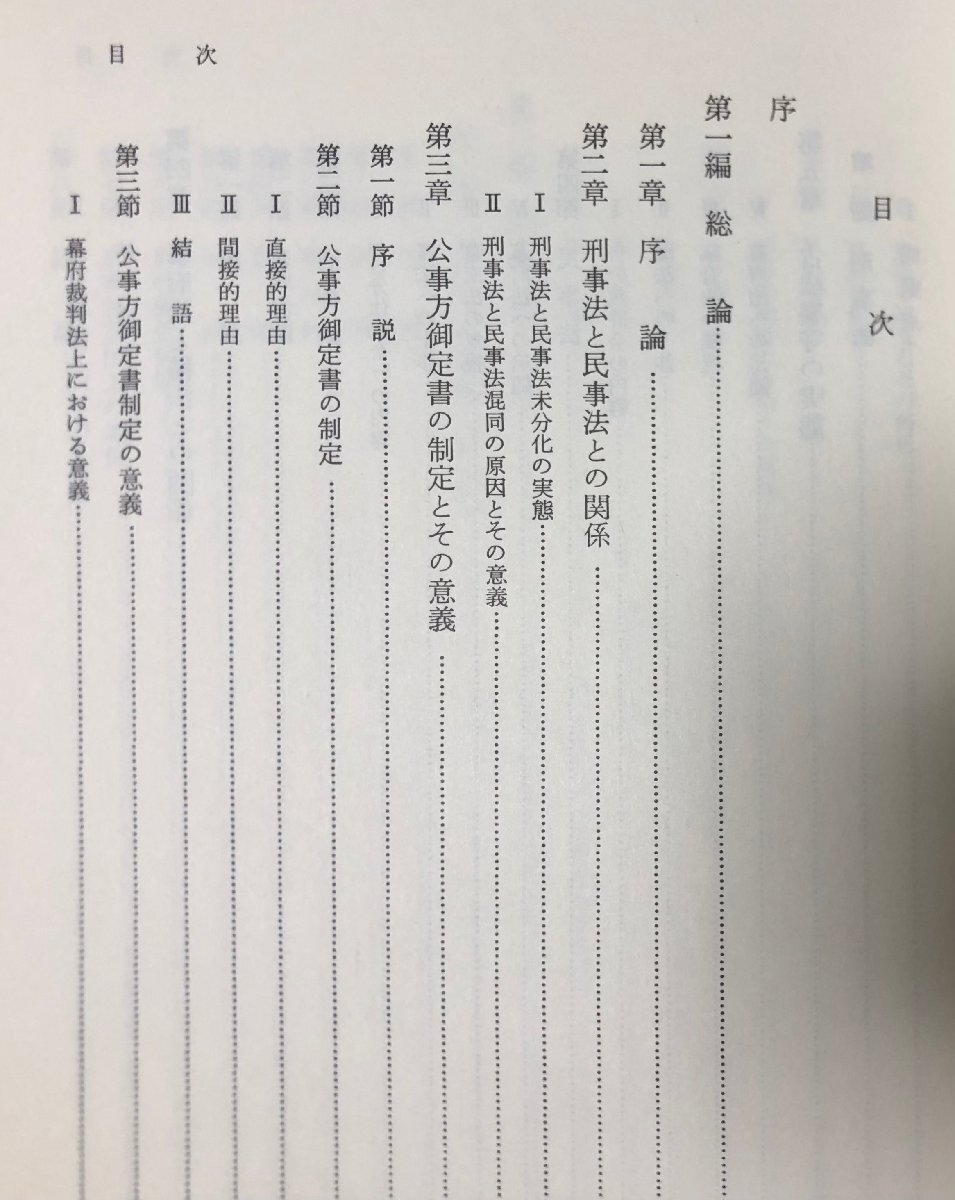 目次
目次
序
第一編 総論……
第一章 序論……
第二章 刑事法と民事法との関係……
Ⅰ 刑事法と民事法未分化の実態……
Ⅱ 刑事法と民事法混同の原因とその意義……
第三章 公事方御定書の制定とその意義……
第一節 序説……
第二節 公事方御定書の制定……
Ⅰ 直接的理由……
Ⅱ 間接的理由……
Ⅲ 結語……
第三節 公事方御定書制定の意義……
Ⅰ 幕府裁判法上における意義……